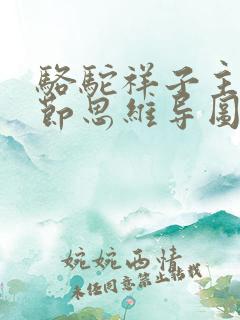 駱駝祥子主
節思維导圖
婉婉西情
未任同意禁止转载